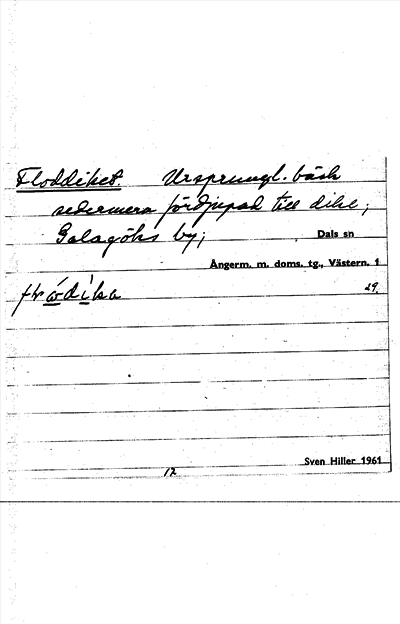 Floddiket. Ursprungl. bäck
sedermera fördjupad till dike;
Galagöks by; Dals sn
Ångerm. m. doms. tg., Västern. 1
29.
Sven Hiller 1961
12